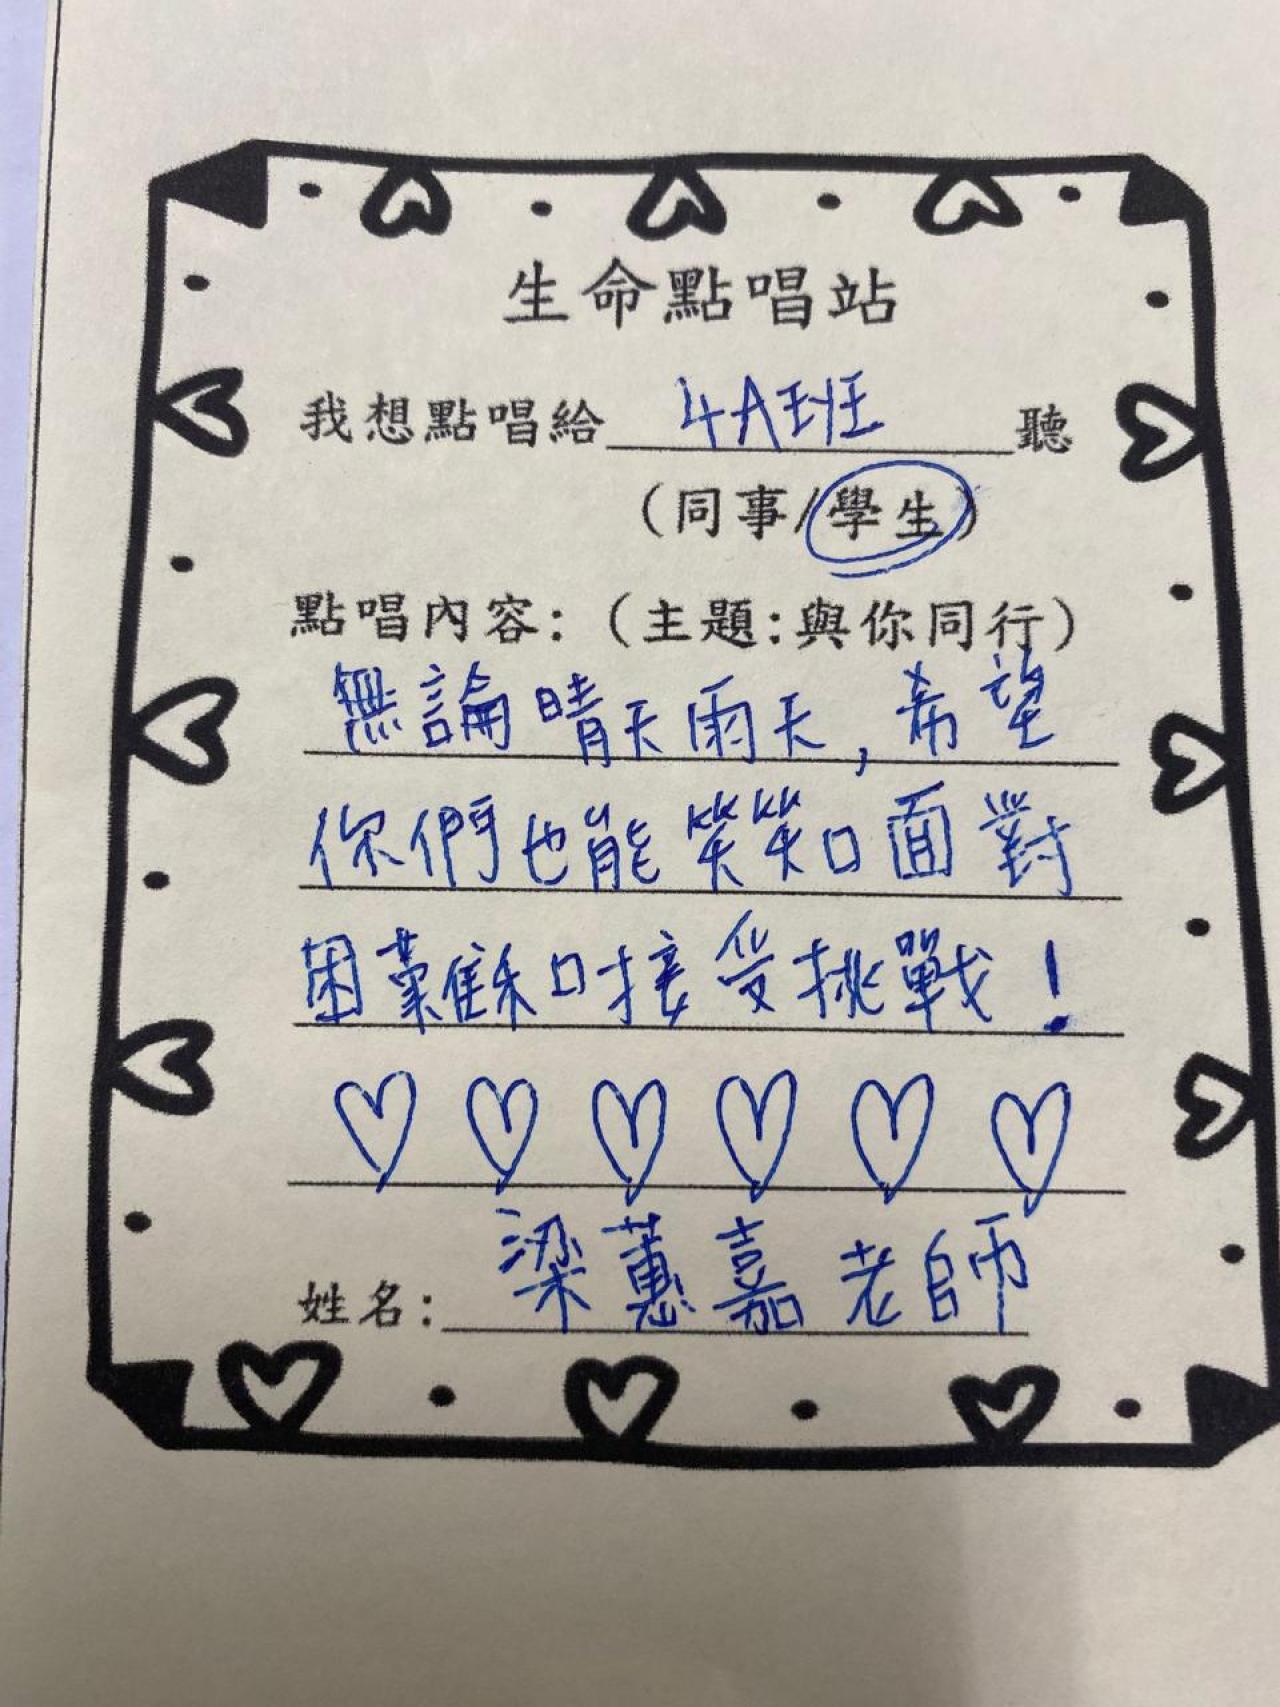 生命點唱站
我想點唱給 4A班 聽
(同事/學生)
點唱內容:(主題:與你同行)
無論晴天雨天,希望
你們也能笑笑如面對
困難和接受挑戰!
♡ ♡ ♡ ♡ ♡ ♡
姓名: 梁蕙嘉老師